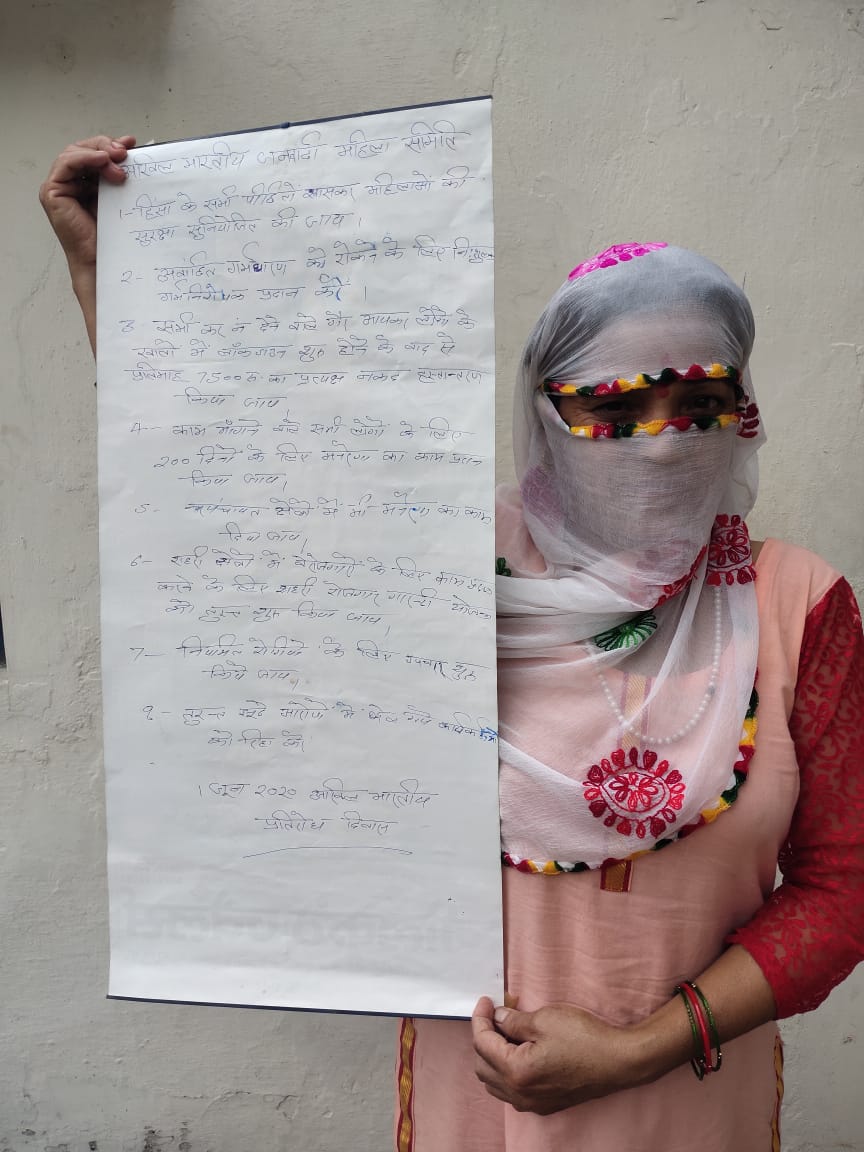 अखिल भारतीय जनवादी महिला समिति
1- हिंसा के सभी पीडितों खासकर महिलाओं की
सुरक्षा सुनियोजित की जाय।
2- अवांछित गर्भधारण को रोकने के लिए निःशुल्क
गर्भनिरोधक प्रदान करें।
3 सभी कर न देने वाले गैर आयकर लोगों के
खातों में लॉकडाउन शुरू होने के बाद से
प्रतिमाह 7500 रु. का प्रत्यक्ष नकद हस्तान्तरण
किया जाय।
4- काम माँगने वाले सभी लोगों के लिए
200 दिनों के लिए मनरेगा का काम प्रदान
किया जाय।
5- पंचायत क्षेत्रों में भी मनरेगा का काम
दिया जाय।
6- शहरी क्षेत्रों में बेरोजगारों के लिए काम प्रदान
करने के लिए शहरी रोजगार गारन्टी योजना
को तुरन्त शुरू किया जाय।
7- नियमित रोगियों के लिए उपचार शुरू
किये जाय।
तुरन्त झूठे आरोपों में
को रिहा करें
1 जून 2020 अखिल भारतीय
प्रतिरोध दिवस